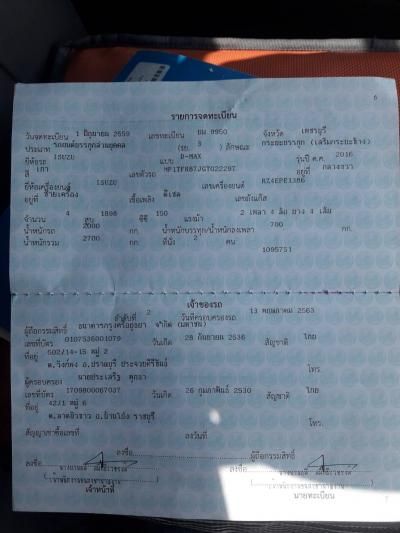 6
รายการจดทะเบียน
วันจดทะเบียน 1 มิถุนายน 2559 เลขทะเบียน ยม 9950 จังหวัด เพชรบุรี
ประเภท รถยนต์บรรทุกส่วนบุคคล (รย. 3 ) ลักษณะ กระบะบรรทุก (เสริมกระบะข้าง)
ยี่ห้อรถ ISUZU แบบ D-MAX รุ่นปี ค.ศ. 2016
สี เทา เลขตัวรถ MP1TFR87JGT022297 อยู่ที่
ยี่ห้อเครื่องยนต์ ISUZU เลขเครื่องยนต์ RZ4EPE1386
อยู่ที่ ซ้ายเครื่อง เชื้อเพลิง ดีเซล เลขถังแก๊ส
จำนวน 4 สูบ 1898 ซีซี 150 แรงม้า 2 เพลา 4 ล้อ ยาง 4 เส้น
น้ำหนักรถ 2000 กก. น้ำหนักบรรทุก/น้ำหนักลงเพลา 700 กก.
น้ำหนักรวม 2700 กก. ที่นั่ง 2 คน
1095751
เจ้าของรถ
ลำดับที่ 2 วันที่ครอบครองรถ 13 พฤษภาคม 2563
ผู้ถือกรรมสิทธิ์ ธนาคารกรุงศรีอยุธยา จำกัด (มหาชน)
เลขที่บัตร 0107536001079 วันเกิด 28 กันยายน 2536 สัญชาติ ไทย
ที่อยู่ 502/14-15 หมู่ 2
ต.วังก์พง อ.ปราณบุรี ประจวบคีรีขันธ์ โทร.
ผู้ครอบครอง นายประเสริฐ
เลขที่บัตร 1709800067037 วันเกิด 26 กุมภาพันธ์ 2530 สัญชาติ ไทย
ที่อยู่ 42/1 หมู่ 6
ต.ลาดบัวขาว อ.บ้านโป่ง ราชบุรี โทร.
สัญญาเช่าซื้อเลขที่ ลงวันที่
ลงชื่อ ผู้ถือกรรมสิทธิ์
ลงชื่อ ลงชื่อ
เจ้าหน้าที่ นายทะเบียน